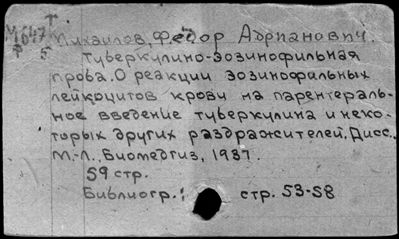 М647 Т
Ф 5
Михайлов, Федор Адрианович.
Туберкулино-эозинофильная
проба. О реакции эозинофильных
лейкоцитов крови на парентераль-
ное введение туберкулина и неко-
торых других раздражителей. Дисс.,
М.-Л., Биомедгиз, 1937.
59 стр.
Библиогр.: стр. 53-58